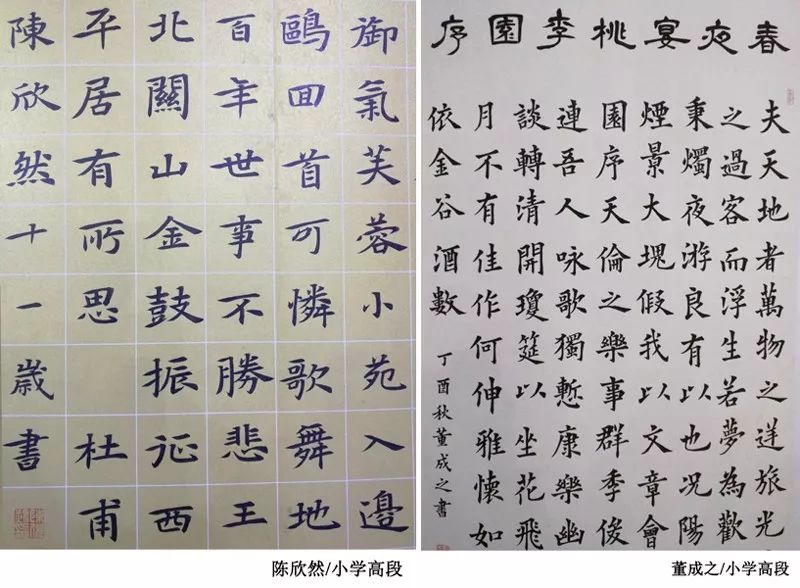 御氣芙蓉小苑入邊
鷗囬首可憐歌舞地
百年世事不勝悲王
北關山金鼓振征西
平居有所思 杜甫
陳欣然十一歲書
陈欣然/小学高段
春夜宴桃李園序
夫天地者萬物之逆旅光
之過客而浮生若夢為歡
秉燭夜游良有以也况陽
煙景大塊假我以文章會
園序天倫之樂事群季俊
連吾人咏歌獨慙康樂幽
談轉清開瓊筵以坐花飛
月不有佳作何伸雅懷如
依金谷酒數
丁酉秋董成之書
董成之/小学高段